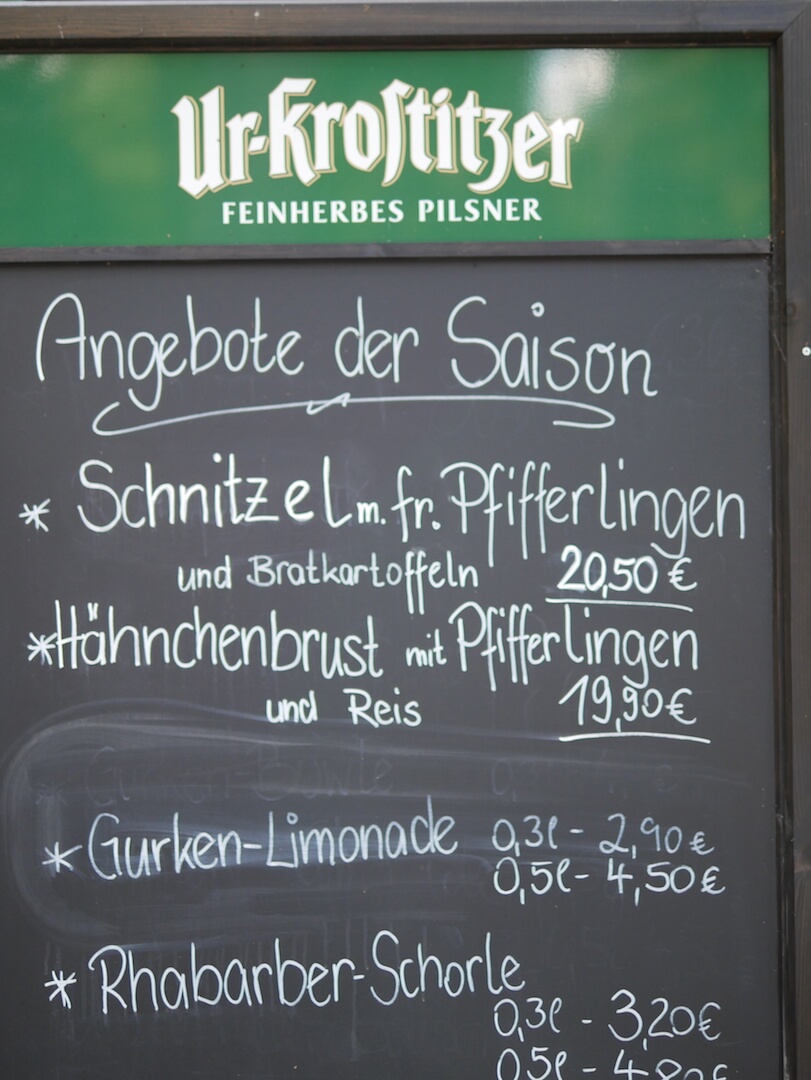 Ur-Krostitzer
FEINHERBES PILSNER
Angebote der Saison
* Schnitzel m. fr. Pfifferlingen
und Bratkartoffeln 20,50 €
* Hähnchenbrust mit Pfifferlingen
und Reis 19,90 €
* Gurken-Limonade 0,3l - 2,90 €
0,5l - 4,50 €
* Rhabarber-Schorle
0,3l - 3,20 €
0,5l - 4,80 €